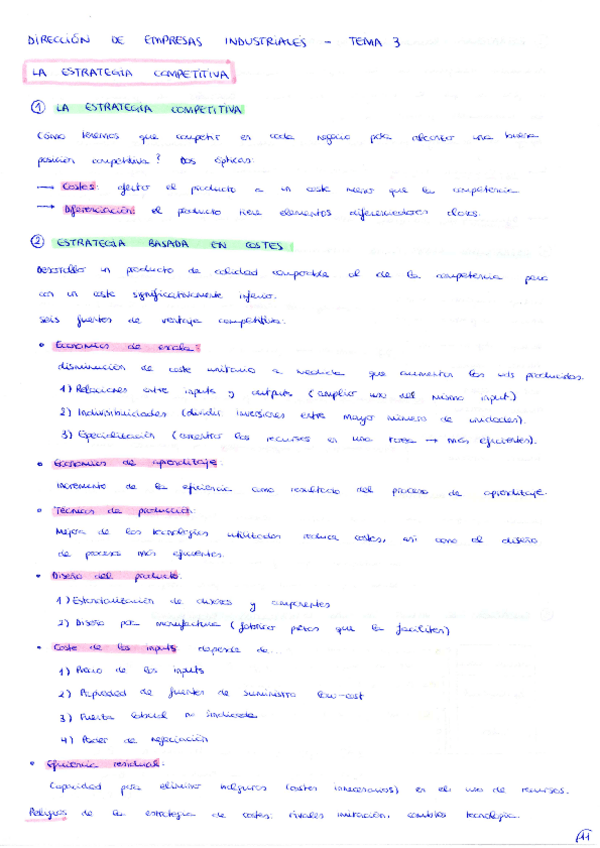 DIRECCIÓN DE EMPRESAS INDUSTRIALES - TEMA 3
LA ESTRATEGIA COMPETITIVA
① LA ESTRATEGIA COMPETITIVA
Cómo tenemos que competir en cada negocio para alcanzar una buena
posición competitiva? Dos ópticas:
→ Costes: ofertar el producto a un coste menor que la competencia
→ Diferenciación: el producto tiene elementos diferenciadores claros.
② ESTRATEGIA BASADA EN COSTES
Desarrollar un producto de calidad comparable al de la competencia pero
con un coste significativamente inferior.
Seis fuentes de ventaja competitiva:
• Economías de escala:
disminución de coste unitario a medida que aumentan las uds producidas.
1) Relaciones entre inputs y outputs (amplio uso del mismo input)
2) Indivisibilidades (dividir inversiones entre mayor número de unidades).
3) Especialización (concentrar los recursos en una tarea → más eficientes).
• Economías de aprendizaje:
Incremento de la eficiencia como resultado del proceso de aprendizaje.
• Técnicas de producción:
Mejora de las tecnologías utilizadas reduce costes, así como el diseño
de procesos más eficientes.
• Diseño del producto:
1) Estandarización de diseños y componentes
2) Diseño para manufactura (fabricar piezas que la faciliten)
• Coste de los inputs depende de...
1) Precio de los inputs
2) Propiedad de fuentes de suministro low-cost
3) Fuerza laboral no sindicada
4) Poder de negociación
• Eficiencia residual:
Capacidad para eliminar holguras (costes innecesarios) en el uso de recursos.
Peligros de la estrategia de costes: rivales imitación, cambios tecnología.
11